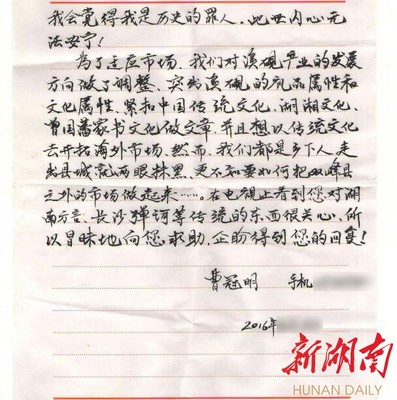 我会觉得我是历史的罪人,此世内心无
法安宁!
为了适应市场,我们对溪砚产业的发展
方向做了调整,突出溪砚的礼品属性和
文化属性,紧扣中国传统文化,湖湘文化、
曾国藩家书文化做文章,并且想以传统文化
去开拓海外市场,然而,我们都是乡下人,走
出县城就两眼抹黑,更不知要如何把双峰县
之外的市场做起来……。在电视上看到您对湖
南方言、长沙弹词等传统的东西很关心,所
以冒昧地向您求助,企盼得到您的回复!
曹冠明 手机
2016年
新湖南
HUNAN DAILY